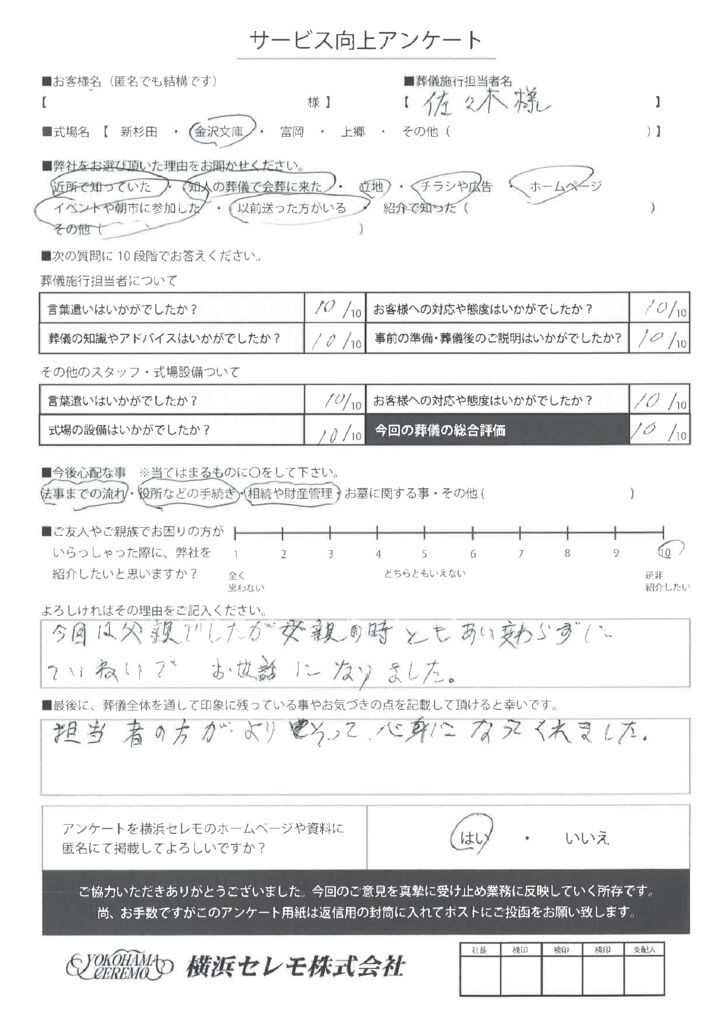 サービス向上アンケート
■お客様名（匿名でも結構です）
【 様 】
■葬儀施行担当者名
【 佐々木様 】
■式場名 【 新杉田 ・ 金沢文庫 ・ 富岡 ・ 上郷 ・ その他（ ）】
■弊社をお選び頂いた理由をお聞かせください。
近所で知っていた ・ 知人の葬儀で会葬に来た ・ 立地 ・ チラシや広告 ・ ホームページ
イベントや朝市に参加した ・ 以前送った方がいる ・ 紹介で知った（ ）
その他（ ）
■次の質問に10段階でお答えください。
葬儀施行担当者について
言葉遣いはいかがでしたか？ 10/10 お客様への対応や態度はいかがでしたか？ 10/10
葬儀の知識やアドバイスはいかがでしたか？ 10/10 事前の準備・葬儀後のご説明はいかがでしたか？ 10/10
その他のスタッフ・式場設備ついて
言葉遣いはいかがでしたか？ 10/10 お客様への対応や態度はいかがでしたか？ 10/10
式場の設備はいかがでしたか？ 10/10 今回の葬儀の総合評価 10/10
■今後心配な事 ※当てはまるものに〇をして下さい。
法事までの流れ・役所などの手続き・相続や財産管理・お墓に関する事・その他（ ）
■ご友人やご親族でお困りの方が
いらっしゃった際に、弊社を
紹介したいと思いますか？
1 2 3 4 5 6 7 8 9 10
全く
思わない
どちらともいえない
是非
紹介したい
よろしければその理由をご記入ください。
今回は父親でしたが母親の時ともあい変わらずに
ていねいで お世話になりました。
■最後に、葬儀全体を通して印象に残っている事やお気づきの点を記載して頂けると幸いです。
担当者の方がよりそって、心身になってくれました。
アンケートを横浜セレモのホームページや資料に
匿名にて掲載してよろしいですか？
はい ・ いいえ
ご協力いただきありがとうございました。今回のご意見を真摯に受け止め業務に反映していく所存です。
尚、お手数ですがこのアンケート用紙は返信用の封筒に入れてポストにご投函をお願い致します。
YOKOHAMA
CEREMO
横浜セレモ株式会社
社長 検印 検印 検印 支配人